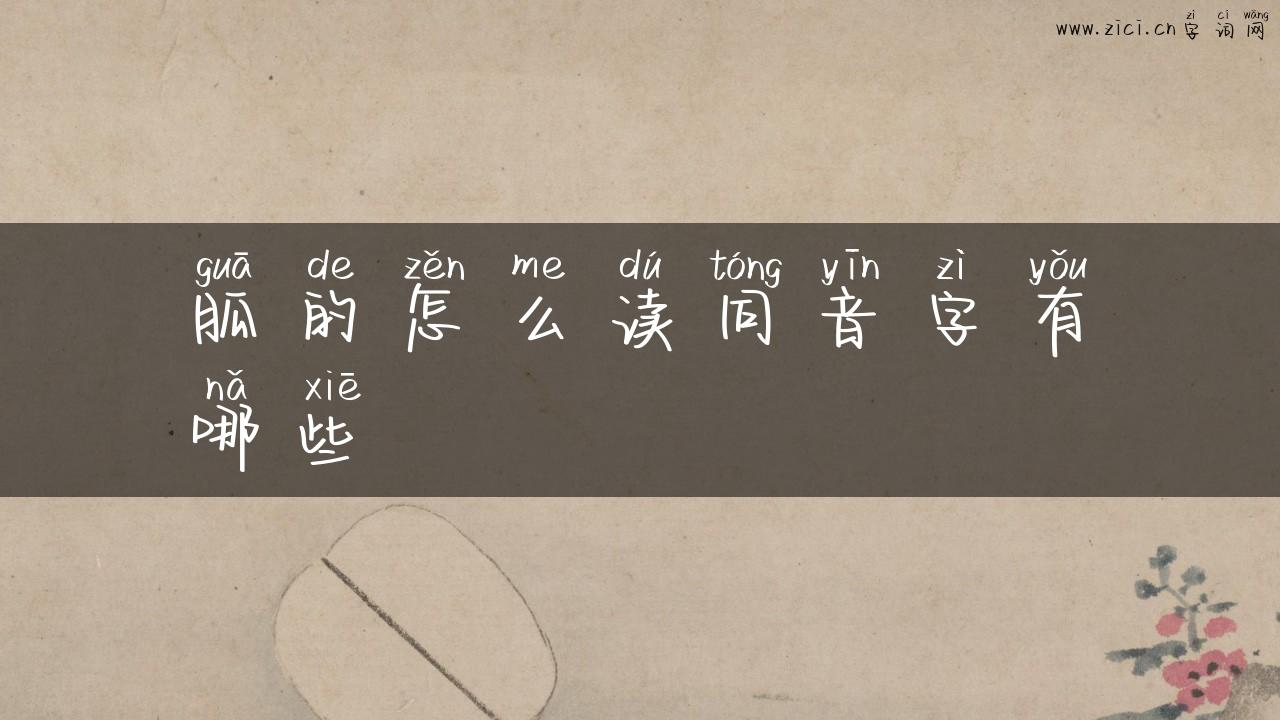 zì cí wǎng
www.zici.cn字词网
guā de zěn me dú tóng yīn zì yǒu
胍的怎么读同音字有
nǎ xiē
哪些